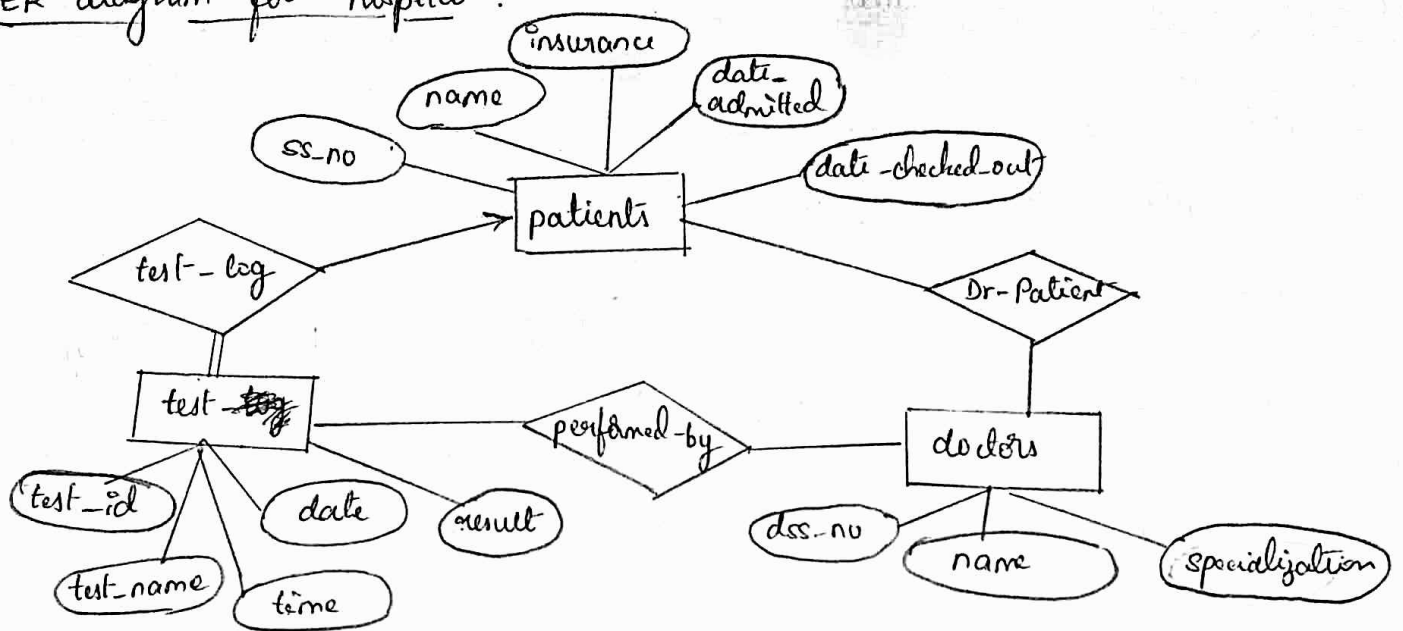 ER diagram for hospital :
insurance
name
date_
admitted
ss_no
date_checked_out
patients
test_log
Dr-Patient
test
performed-by
doctors
test_id
date
result
dss_no
name
specialization
test_name
time